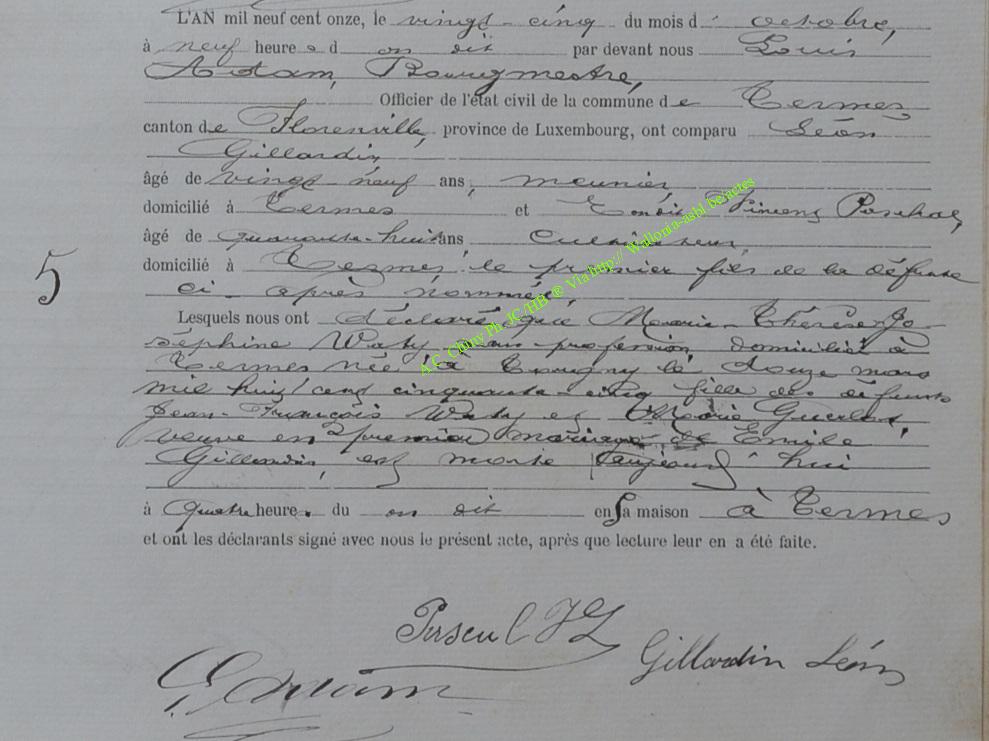 L'AN mil neuf cent onze, le vingt-cinq du mois d' octobre,
à neuf heures d on dit par devant nous Louis
Adam, Bourgmestre,
Officier de l'état civil de la commune de Termes
canton de Florenville, province de Luxembourg, ont comparu Léon
Gillardin,
âgé de vingt neuf ans, meunier,
domicilié à Termes et
âgé de quarante-huit ans cultivateur,
domicilié à Termes, le premier fils de la défunte
ci-après nommée
Lesquels nous ont déclaré que Marie-Thérèse-Jo-
séphine Waty sans profession, domiciliée à
Termes née à Torgny le douze mars
mil huit cent cinquante-cinq fille des défunts
Jean-François Waty et Marie
veuve en premier mariage de Emile
Gillardin, est morte aujourd'hui
à quatre heures du on dit en sa maison à Termes
et ont les déclarants signé avec nous le présent acte, après que lecture leur en a été faite.
5
A.C. Chiny Ph. JC/HB @ Via http:// Wallonia-asbl.be/actes
Gillardin Léon
L. Adam